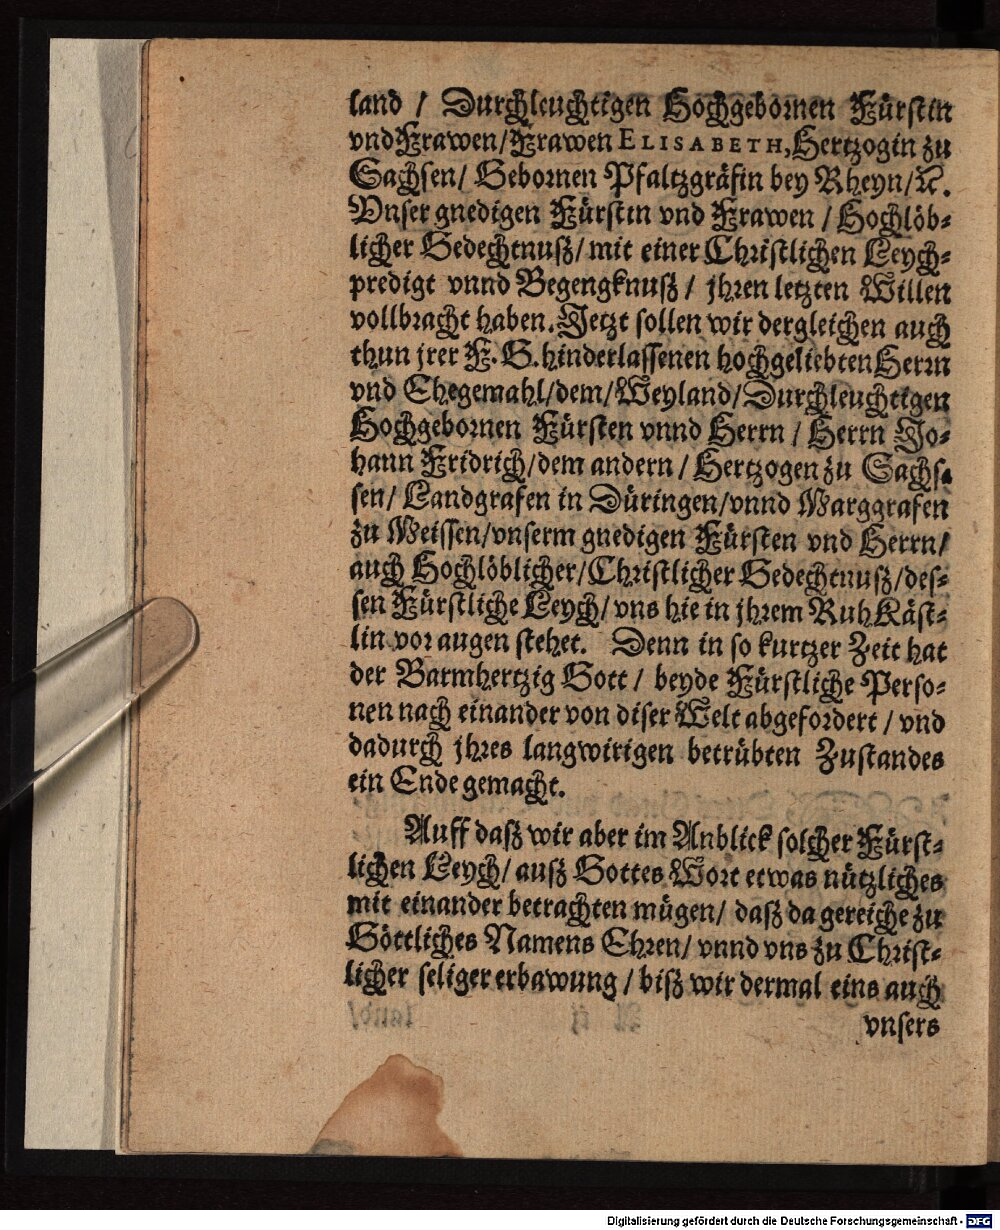 land / Durchleuchtigen Hochgebornen Fürstin
vnd Frawen/ Frawen ELISABETH, Hertzogin zu
Sachsen/ Gebornen Pfaltzgräfin bey Rheyn/ ꝛc.
Vnser gnedigen Fürstin vnd Frawen / Hochlöb-
licher Gedechtnuß/ mit einer Christlichen Leych-
predigt vnnd Begengknuß / jhren letzten Willen
vollbracht haben. Jetzt sollen wir dergleichen auch
thun jrer F. G. hinderlassenen hochgeliebten Herrn
vnd Ehegemahl/ dem/ Weyland/ Durchleuchtigen
Hochgebornen Fürsten vnnd Herrn / Herrn Jo-
hann Fridrich/ dem andern / Hertzogen zu Sachs-
sen/ Landgrafen in Düringen/ vnnd Marggrafen
zu Meissen/ vnserm gnedigen Fürsten vnd Herrn/
auch Hochlöblicher/ Christlicher Gedechtnuß/ des-
sen Fürstliche Leych/ vns hie in jhrem Ruh Käst-
lin vor augen stehet. Denn in so kurtzer Zeit hat
der Barmhertzig Gott / beyde Fürstliche Perso-
nen nach einander von diser Welt abgefordert / vnd
dadurch jhres langwirigen betrübten Zustandes
ein Ende gemacht.
Auff daß wir aber im Anblick solcher Fürst-
lichen Leych/ auß Gottes Wort etwas nützliches
mit einander betrachten mügen/ daß da gereiche zu
Göttliches Namens Ehren/ vnnd vns zu Christ-
licher seliger erbawung / biß wir dermal eins auch
vnsers
Digitalisierung gefördert durch die Deutsche Forschungsgemeinschaft - DFG